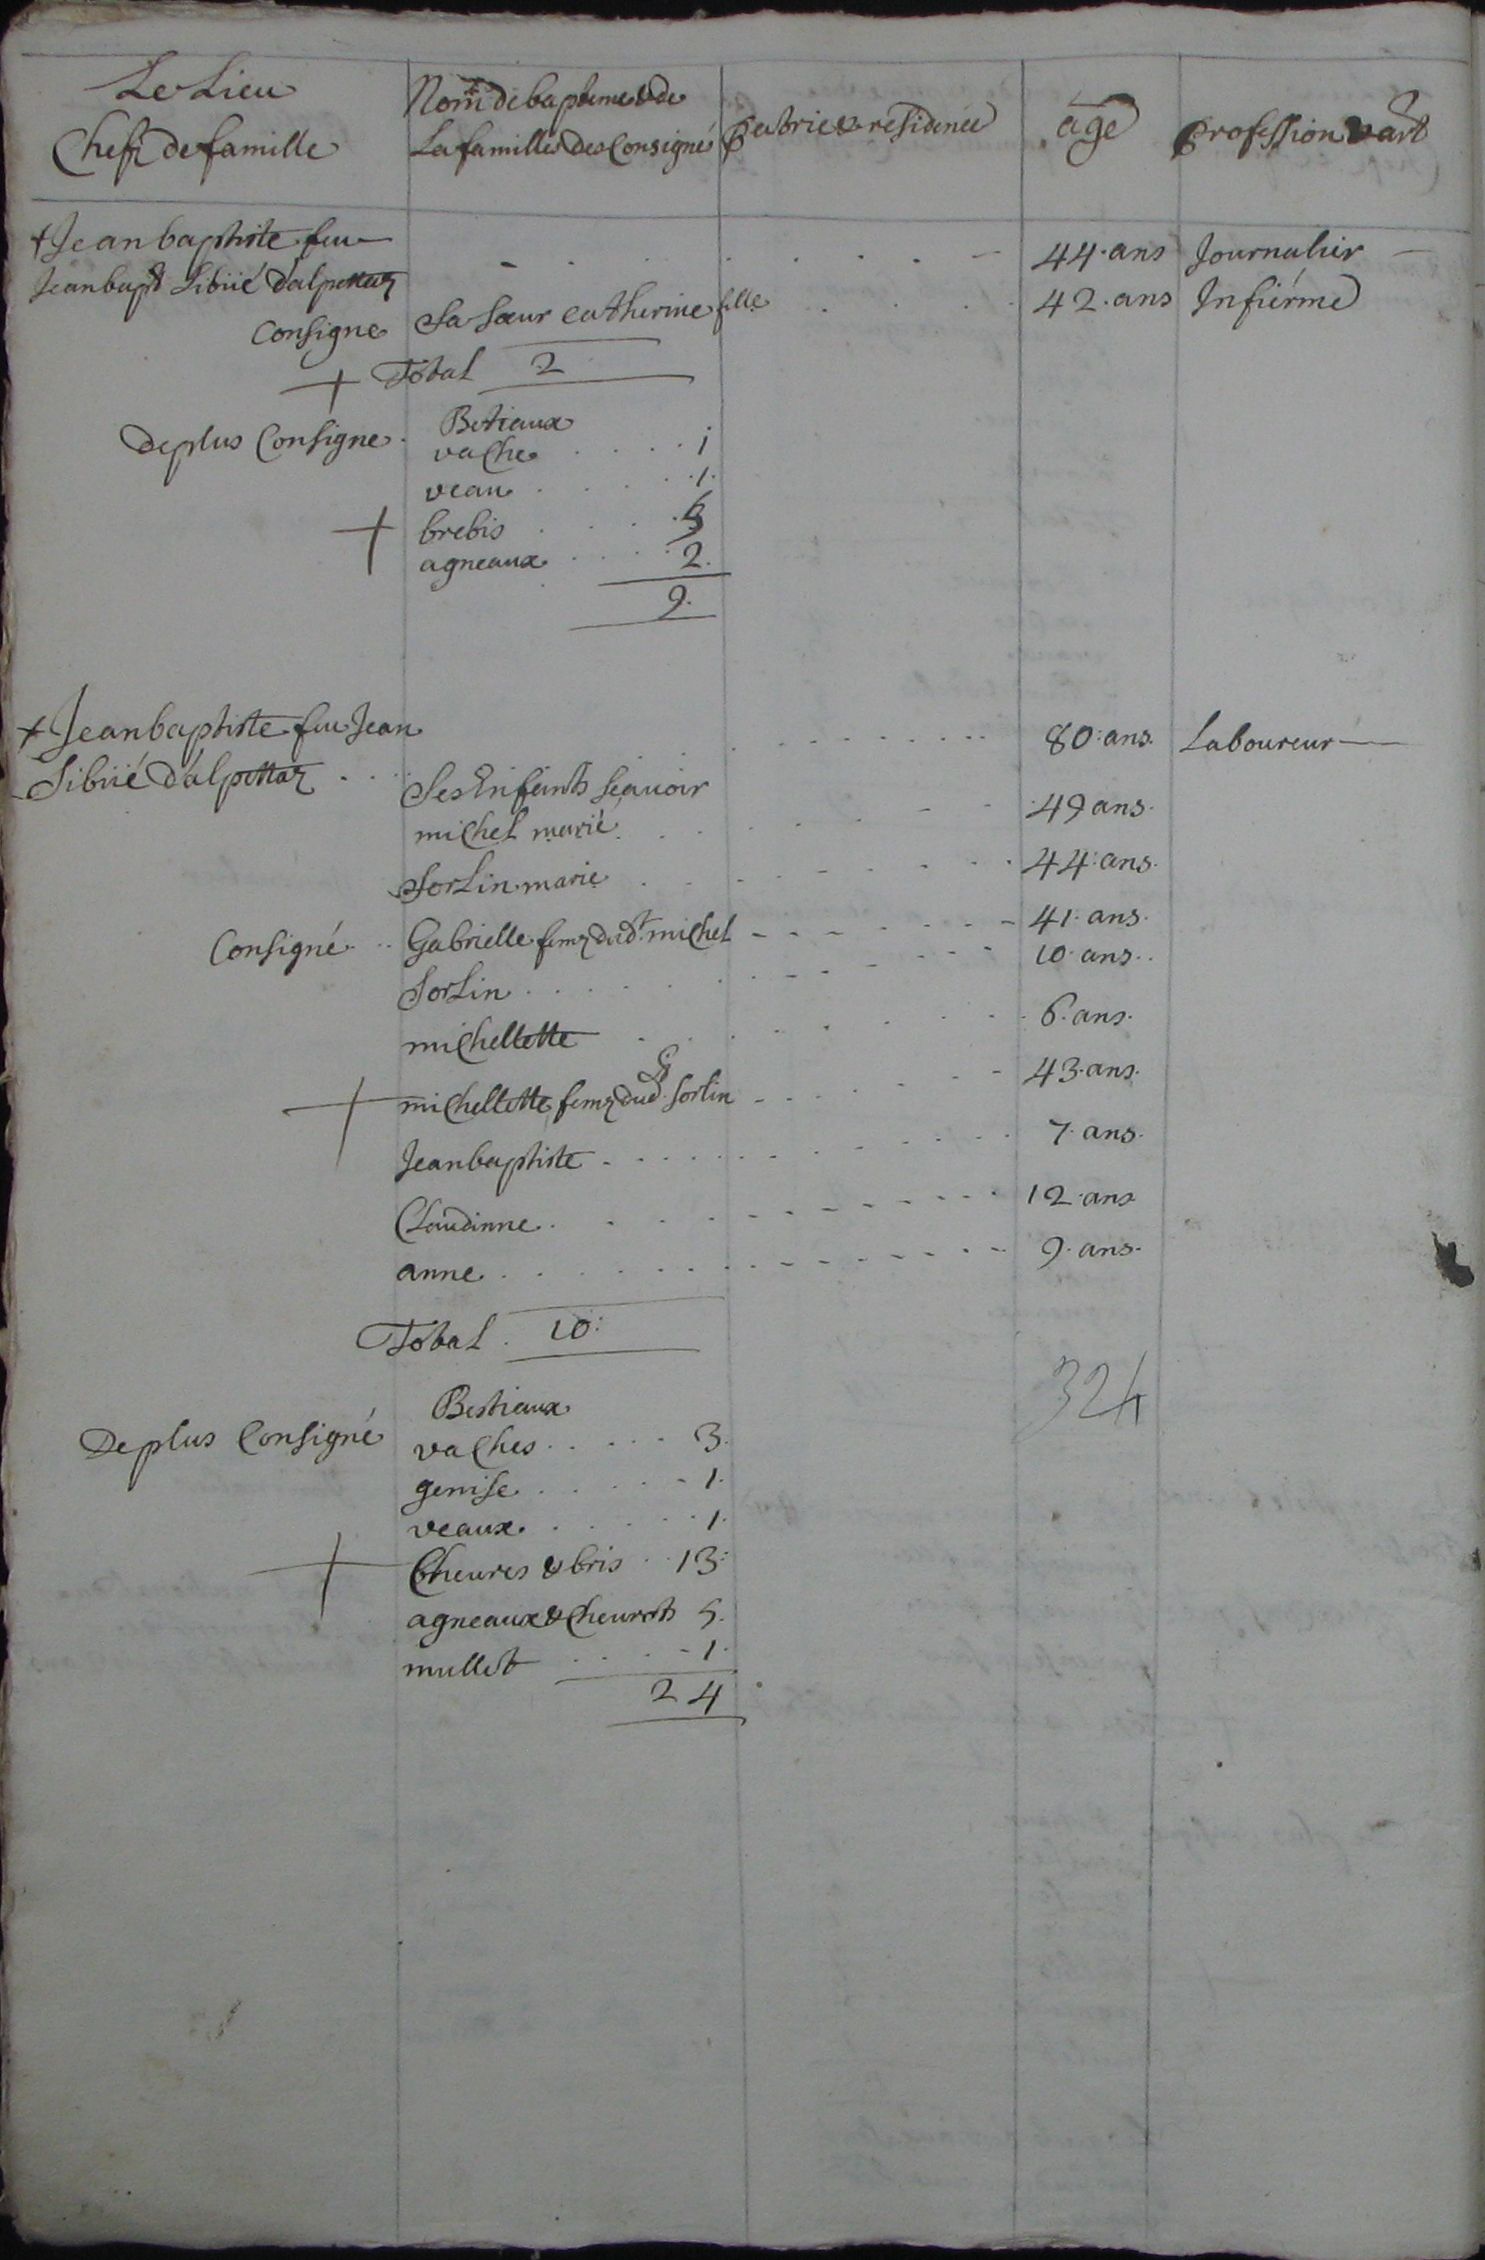 Le Lieu
Chefz de famille
Nom de bapteme & de
La famille Des Consigné
patrie & residence
age
profession & art
+ Jean baptiste feu
Jean bapt Sibüé d'alpettaz
44. ans Journalier
Consigne Sa Sœur catherine fille 42. ans Infiérme
+ Total 2
De plus Consigne Betiaux
vache 1
veau 1.
+ brebis 5
agneaux 2.
9.
+ Jean baptiste feu Jean
Sibüé d'alpettaz
80: ans. Laboureur
Ses Enfants Scavoir
michel marié 49 ans.
Sorlin marié 44: ans.
Consigné Gabrielle femz dudt michel 41. ans.
Sorlin 10. ans.
michellette 6. ans.
+ michellette femz dud. Sorlin 43. ans.
Jean baptiste 7. ans.
Claudinne 12. ans
anne 9. ans.
Total 10:
324
De plus Consigné Bestiaux
vaches 3.
genise 1.
veaux 1.
+ Cheures & bris 13:
agneaux & Cheurets 5.
mullet 1.
24